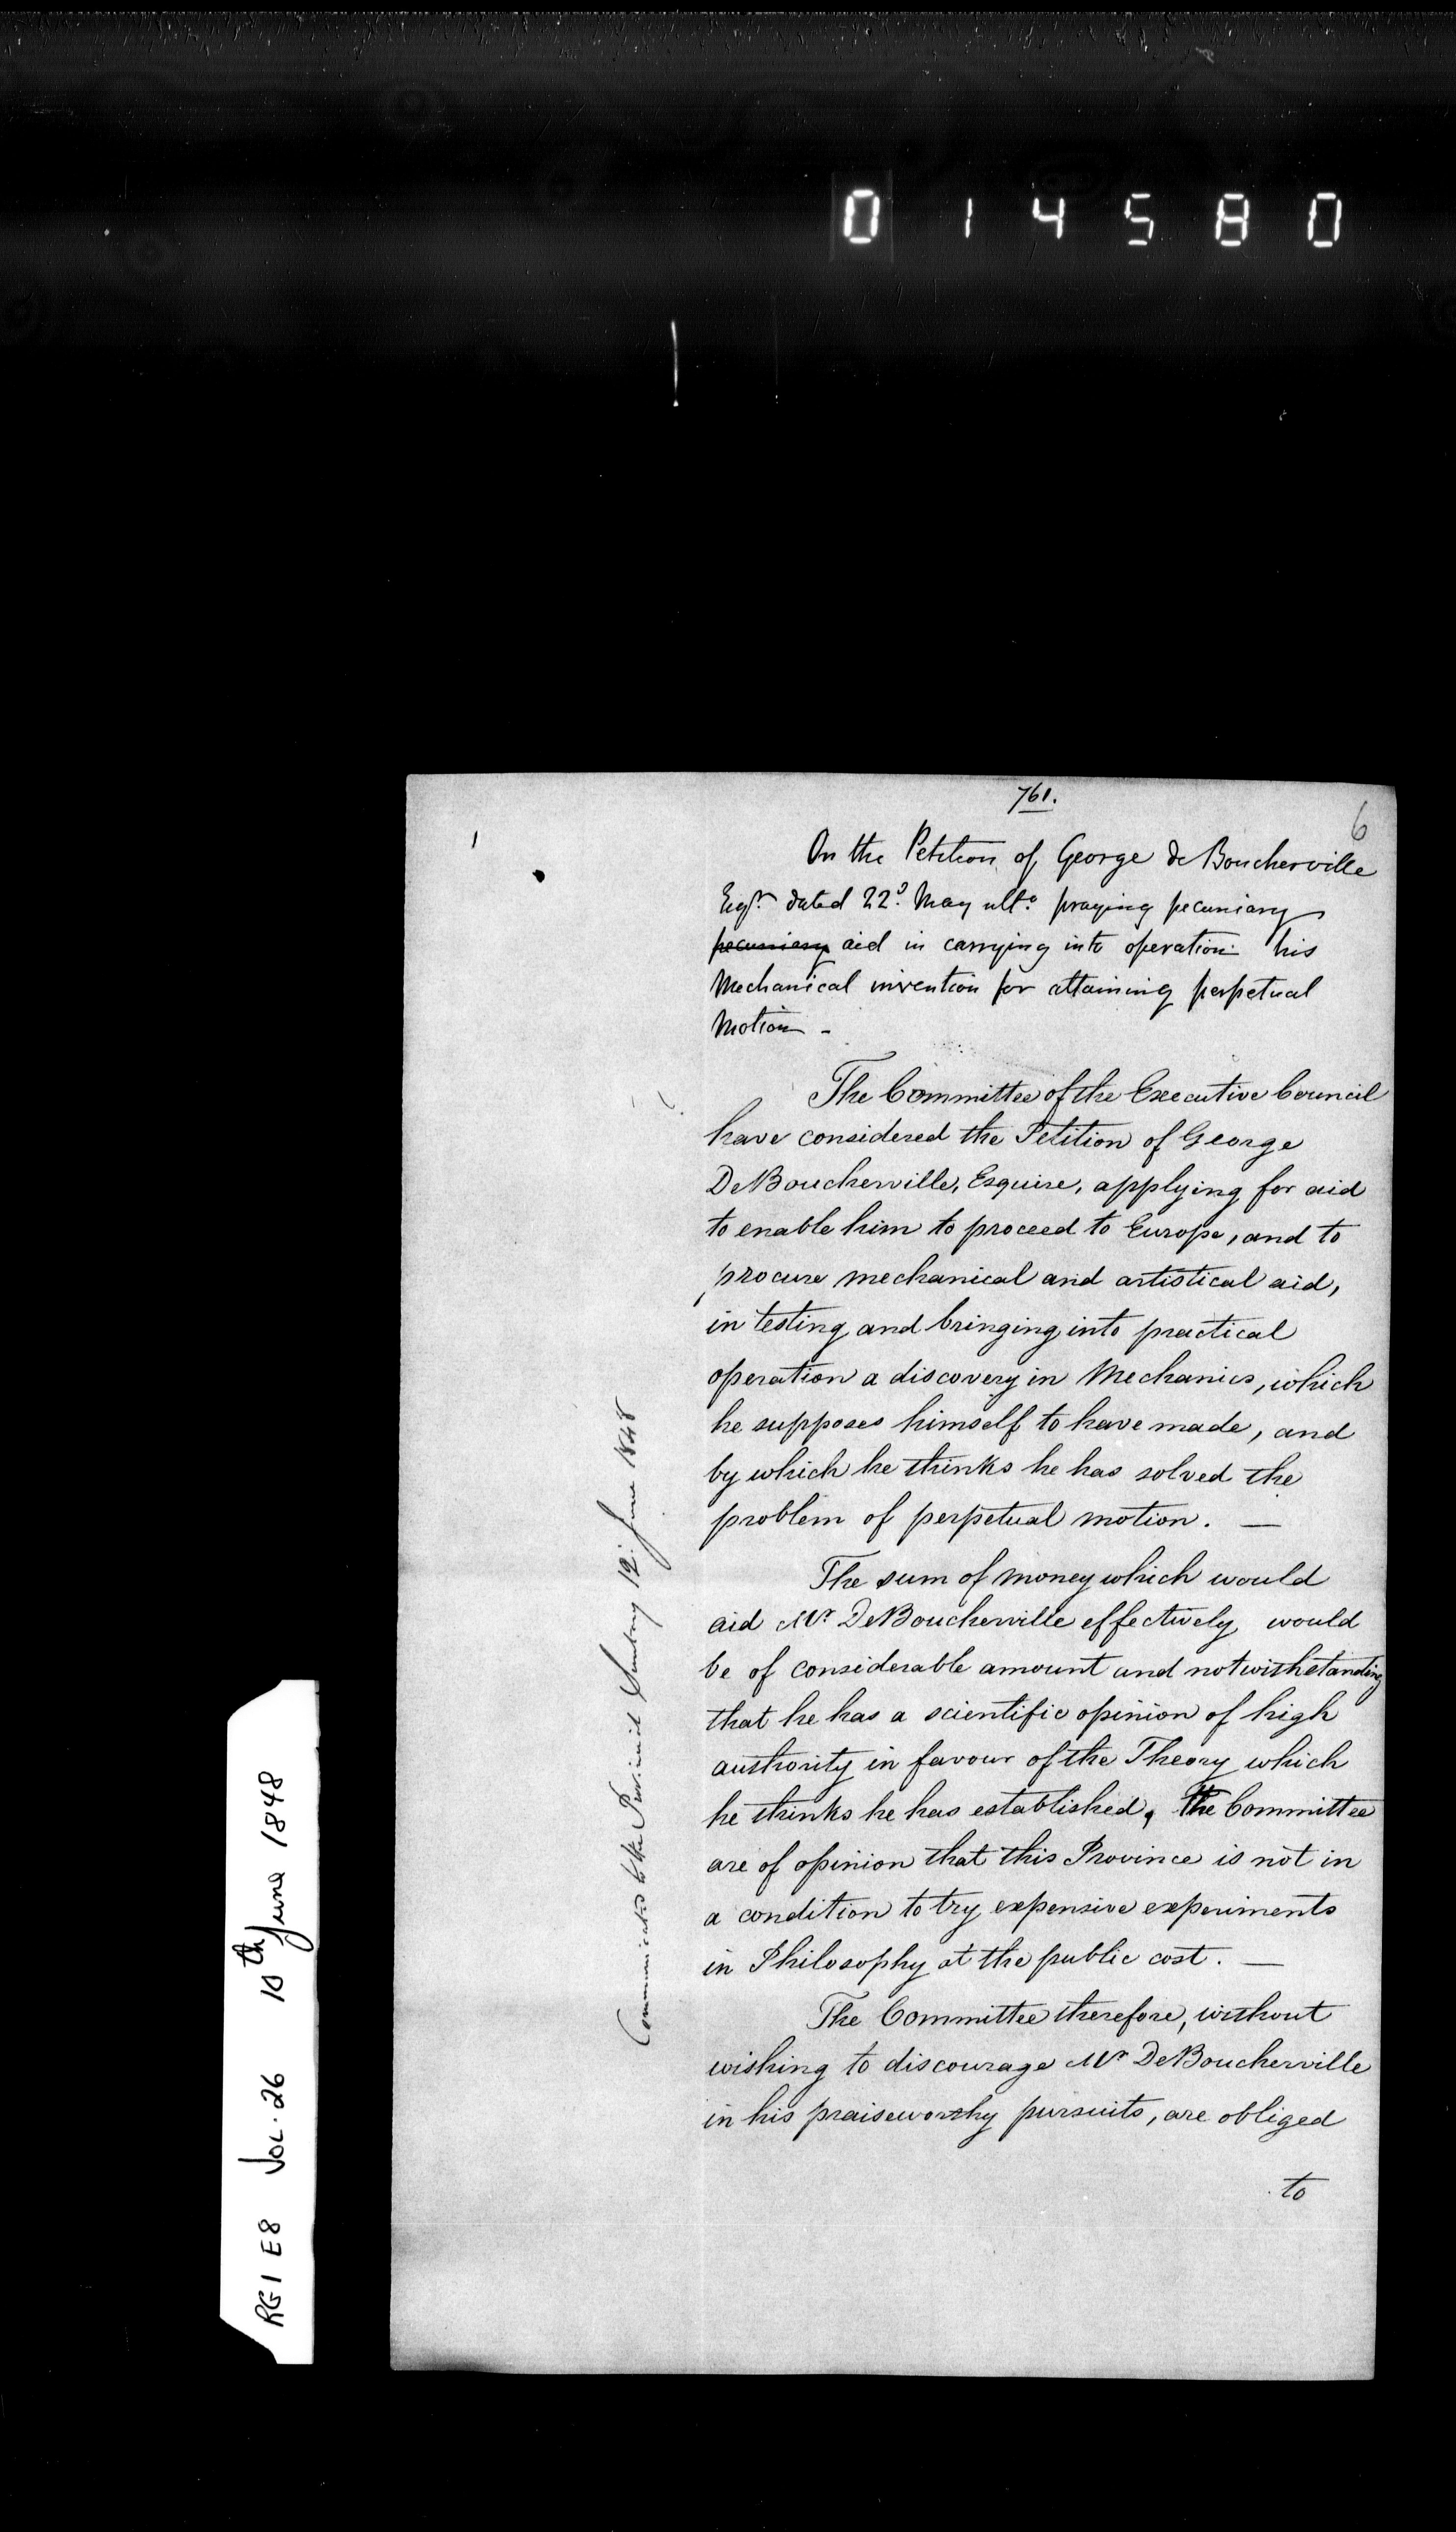 014580
761.
6
On the Petition of George de Boucherville
Esqr. dated 22d. May ulto. praying pecuniary
pecuniary aid in carrying into operation his
Mechanical invention for attaining perpetual
Motion -
The Committee of the Executive Council
have considered the Petition of George
DeBoucherville, Esquire, applying for aid
to enable him to proceed to Europe, and to
procure mechanical and artistical aid,
in testing and bringing into practical
operation a discovery in Mechanics, which
he supposes himself to have made, and
by which he thinks he has solved the
problem of perpetual motion. —
The sum of money which would
aid Mr DeBoucherville effectively would
be of considerable amount and notwithstanding
that he has a scientific opinion of high
authority in favour of the Theory which
he thinks he has established, the Committee
are of opinion that this Province is not in
a condition to try expensive experiments
in Philosophy at the public cost. —
The Committee therefore, without
wishing to discourage Mr DeBoucherville
in his praiseworthy pursuits, are obliged
to
Communicated to the Provincial Secretary 12. June 1848
RG1 E8 Vol. 26 10th June 1848